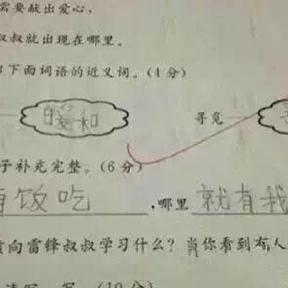 需要献出爱心,
叔叔就出现在哪里。
下面词语的近义词。(4分)
暖和 寻觅
子补充完整。(6分)
有饭吃,哪里就有我
向雷锋叔叔学习什么?当你看到有人